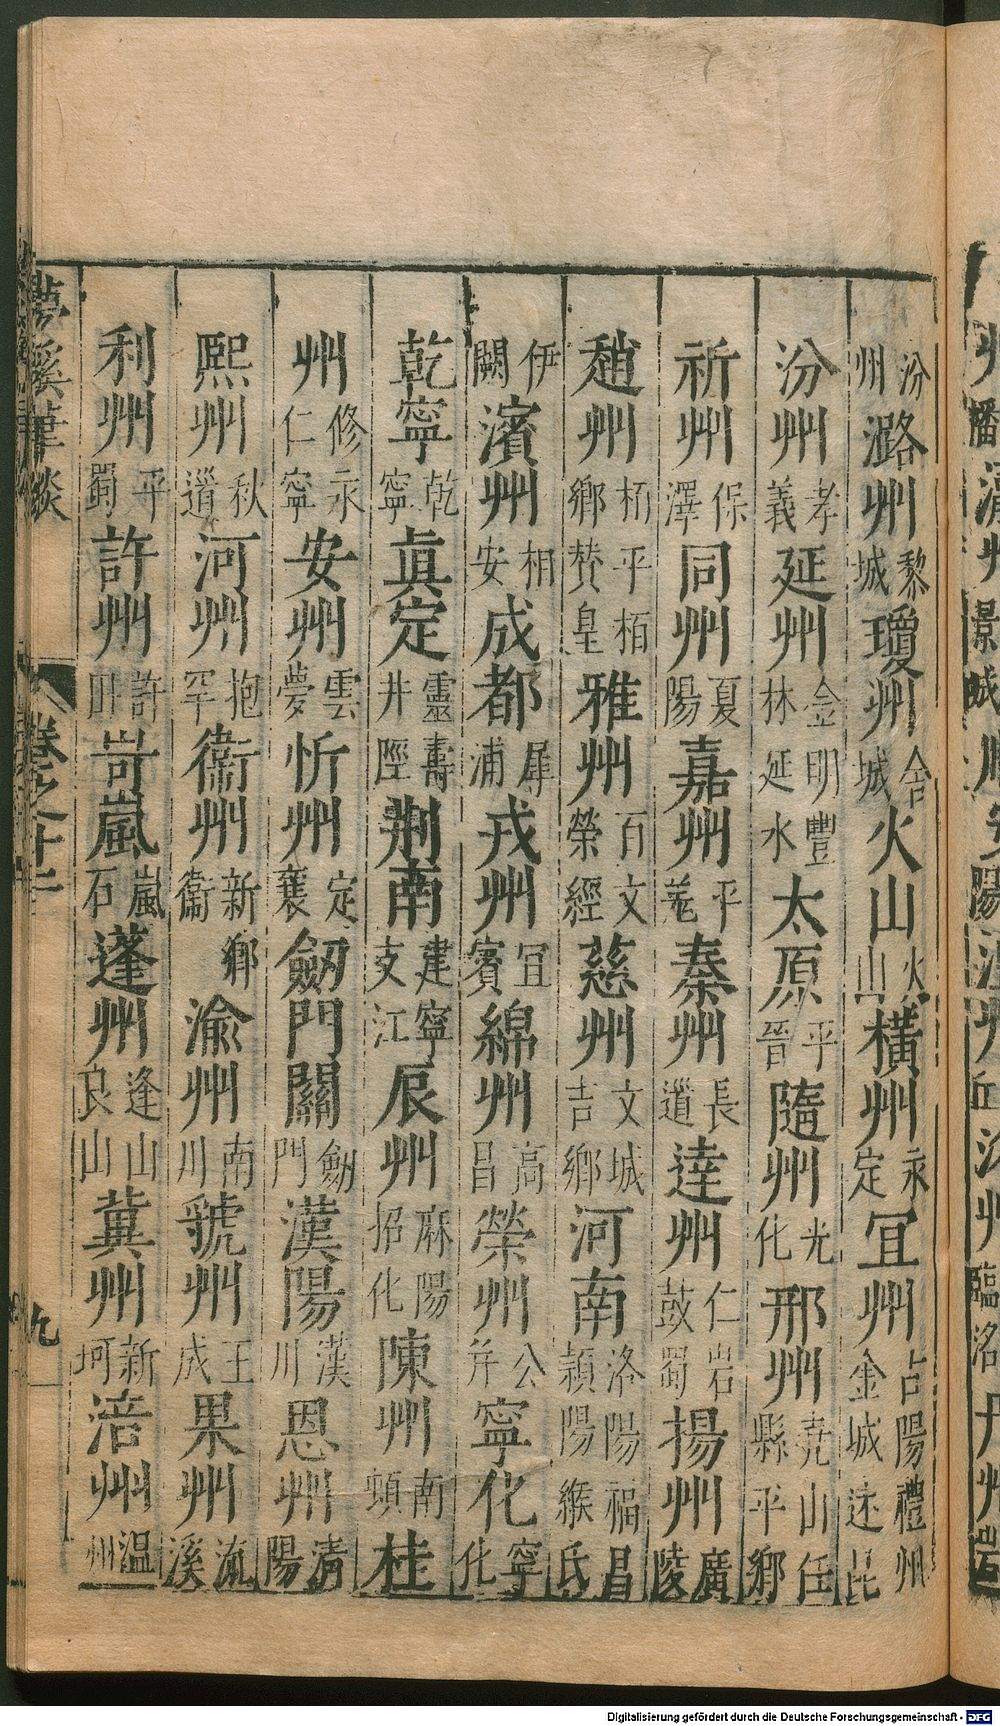 汾州潞州黎城瓊州舍城火山火山橫州永定宜州古陽禮州金城述昆
汾州孝義延州金明豐林延水太原平晉隨州光化邢州堯山任縣平鄉
祈州保澤同州夏陽嘉州平羌秦州長道達州仁岩鼓蜀揚州廣陵
趙州栢鄉贊皇平栢雅州百文榮經慈州文城吉鄉河南洛陽福昌潁陽緱氏
伊闕濱州相安成都犀浦戎州宜賓綿州高昌榮州公井寧化寧化
乾寧乾寧眞定靈壽井陘荆南建寧支江辰州麻陽招化陳州南頓桂
州修仁永寧安州雲夢忻州定襄劒門關劒門漢陽漢川恩州清陽
熙州秋道河州抱罕衞州新鄉衞渝州南川虢州王成果州流溪
利州平蜀許州許田岢嵐嵐石蓬州逢山良山冀州新河涪州温州
夢溪筆談
卷之十二
九
Digitalisierung gefördert durch die Deutsche Forschungsgemeinschaft - DFG